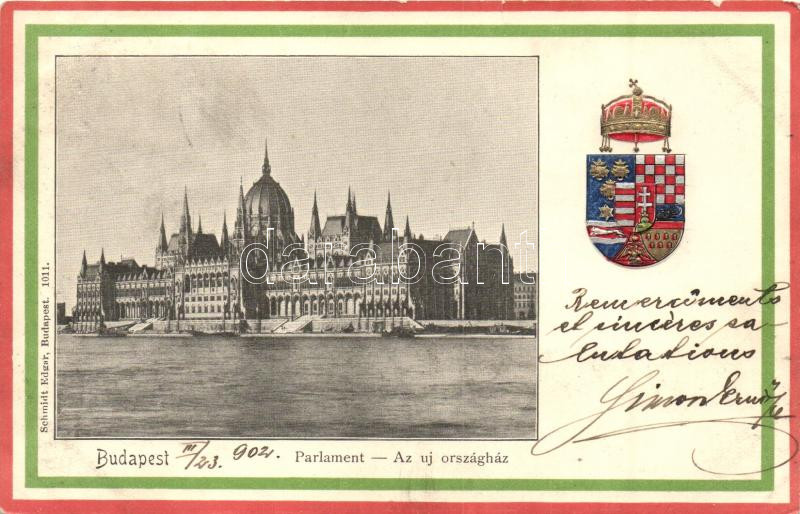 Schmidt Edgar, Budapest. 1011.
darabanth.com
Remercîments
et sincères sa
lutations
Simon Ernő
Budapest III/23. 902.
Parlament — Az uj országház